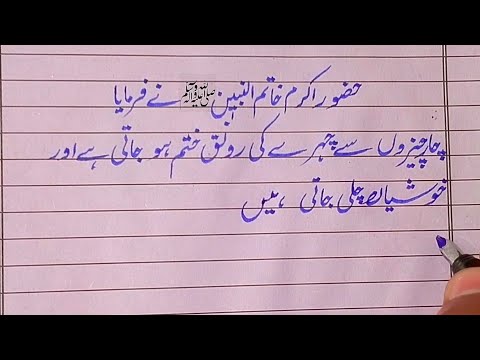 حضور اکرم خاتم النبین ﷺ نے فرمایا
چار چیزوں سے چہرے کی رونق ختم ہو جاتی ہے اور
خوشیاں چلی جاتی ہیں